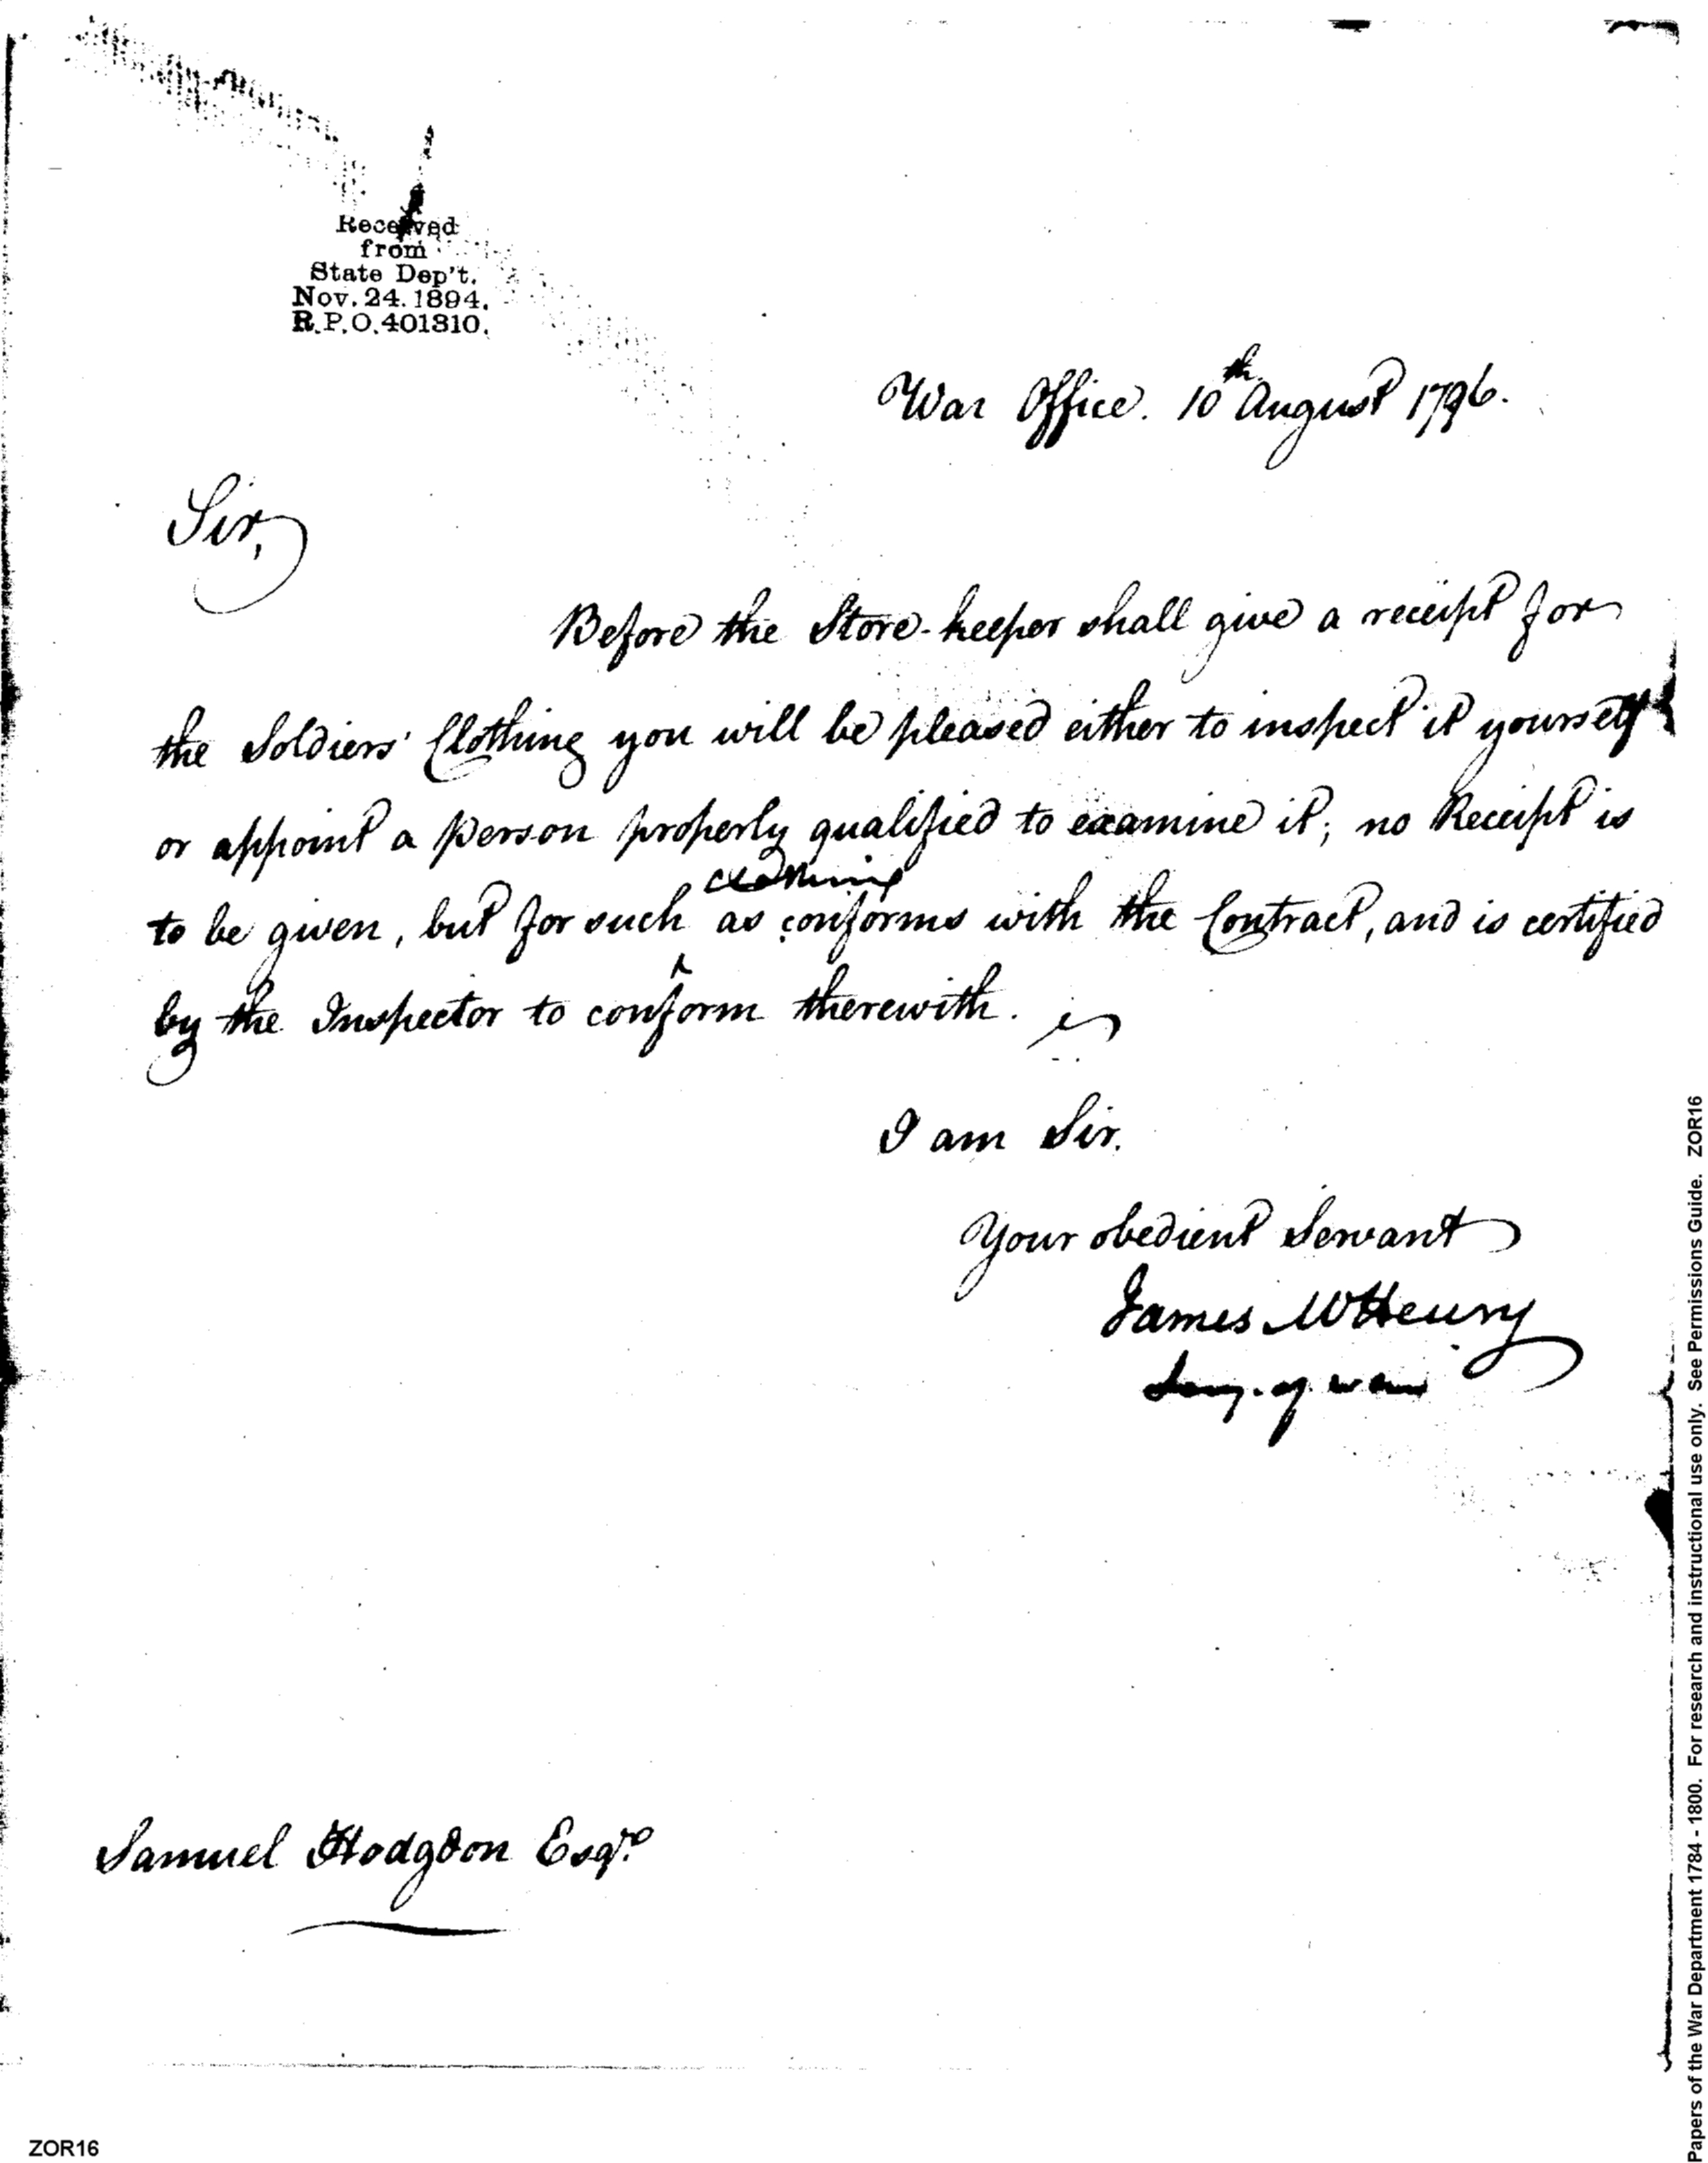 Received
from
State Dep't.
Nov. 24. 1894.
R.P.O. 401310.
War Office. 10th August 1796.
Sir,
Before the Store-keeper shall give a receipt for
the Soldiers' Clothing you will be pleased either to inspect it yourself
or appoint a person properly qualified to examine it; no Receipt is
clothing
to be given, but for such ^ as conforms with the Contract, and is certified
by the Inspector to conform therewith.
I am Sir.
Your obedient Servant
James McHenry
Secy. of war
Samuel Hodgdon Esqre
ZOR16
Papers of the War Department 1784 - 1800. For research and instructional use only. See Permissions Guide. ZOR16